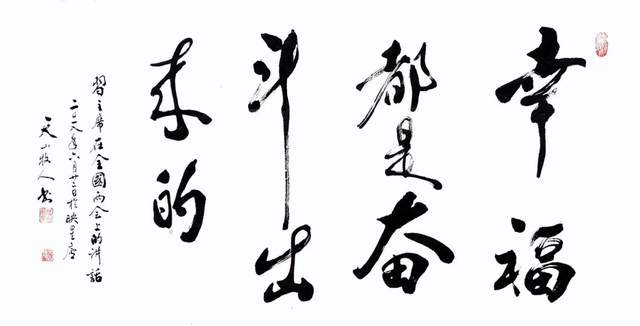 幸福
都是奋
斗出
来的
習主席在全國两会上的讲話
二〇一八年六月廿二日於映星庐
天山牧人书